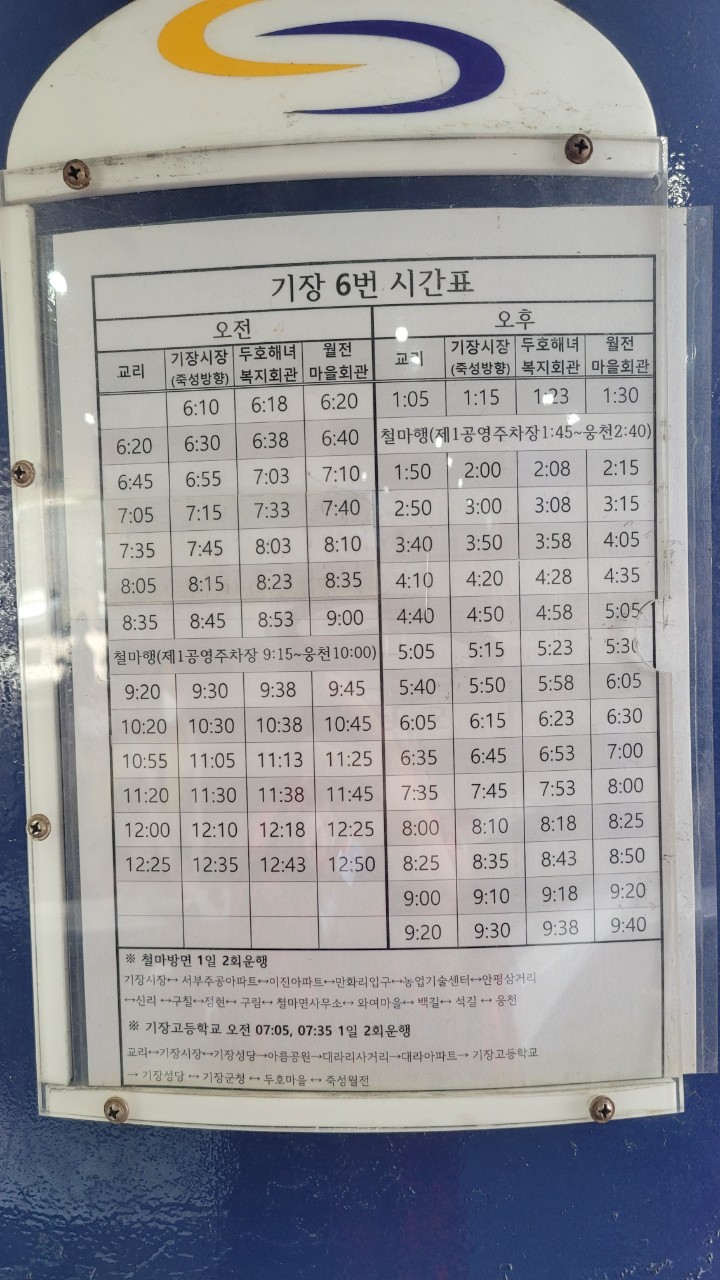 기장 6번 시간표
오전 오후
교리 기장시장 (죽성방향) 두호해녀 복지회관 월전 마을회관 교리 기장시장 (죽성방향) 두호해녀 복지회관 월전 마을회관
6:10 6:18 6:20 1:05 1:15 1:23 1:30
6:20 6:30 6:38 6:40 철마행(제1공영주차장1:45~웅천2:40)
6:45 6:55 7:03 7:10 1:50 2:00 2:08 2:15
7:05 7:15 7:33 7:40 2:50 3:00 3:08 3:15
7:35 7:45 8:03 8:10 3:40 3:50 3:58 4:05
8:05 8:15 8:23 8:35 4:10 4:20 4:28 4:35
8:35 8:45 8:53 9:00 4:40 4:50 4:58 5:05
철마행(제1공영주차장 9:15~웅천10:00) 5:05 5:15 5:23 5:30
9:20 9:30 9:38 9:45 5:40 5:50 5:58 6:05
10:20 10:30 10:38 10:45 6:05 6:15 6:23 6:30
10:55 11:05 11:13 11:25 6:35 6:45 6:53 7:00
11:20 11:30 11:38 11:45 7:35 7:45 7:53 8:00
12:00 12:10 12:18 12:25 8:00 8:10 8:18 8:25
12:25 12:35 12:43 12:50 8:25 8:35 8:43 8:50
9:00 9:10 9:18 9:20
9:20 9:30 9:38 9:40
※ 철마방면 1일 2회운행
기장시장↔ 서부주공아파트↔이진아파트↔만화리입구↔농업기술센터↔안평삼거리
↔신리 ↔구칠↔점현↔ 구림↔ 철마면사무소↔ 와여마을↔ 백길↔ 석길 ↔ 웅천
※ 기장고등학교 오전 07:05, 07:35 1일 2회운행
교리↔기장시장↔기장성당→아름공원→대라리사거리→대라아파트→ 기장고등학교
→ 기장성당 ↔ 기장군청 ↔ 두호마을 ↔ 죽성월전